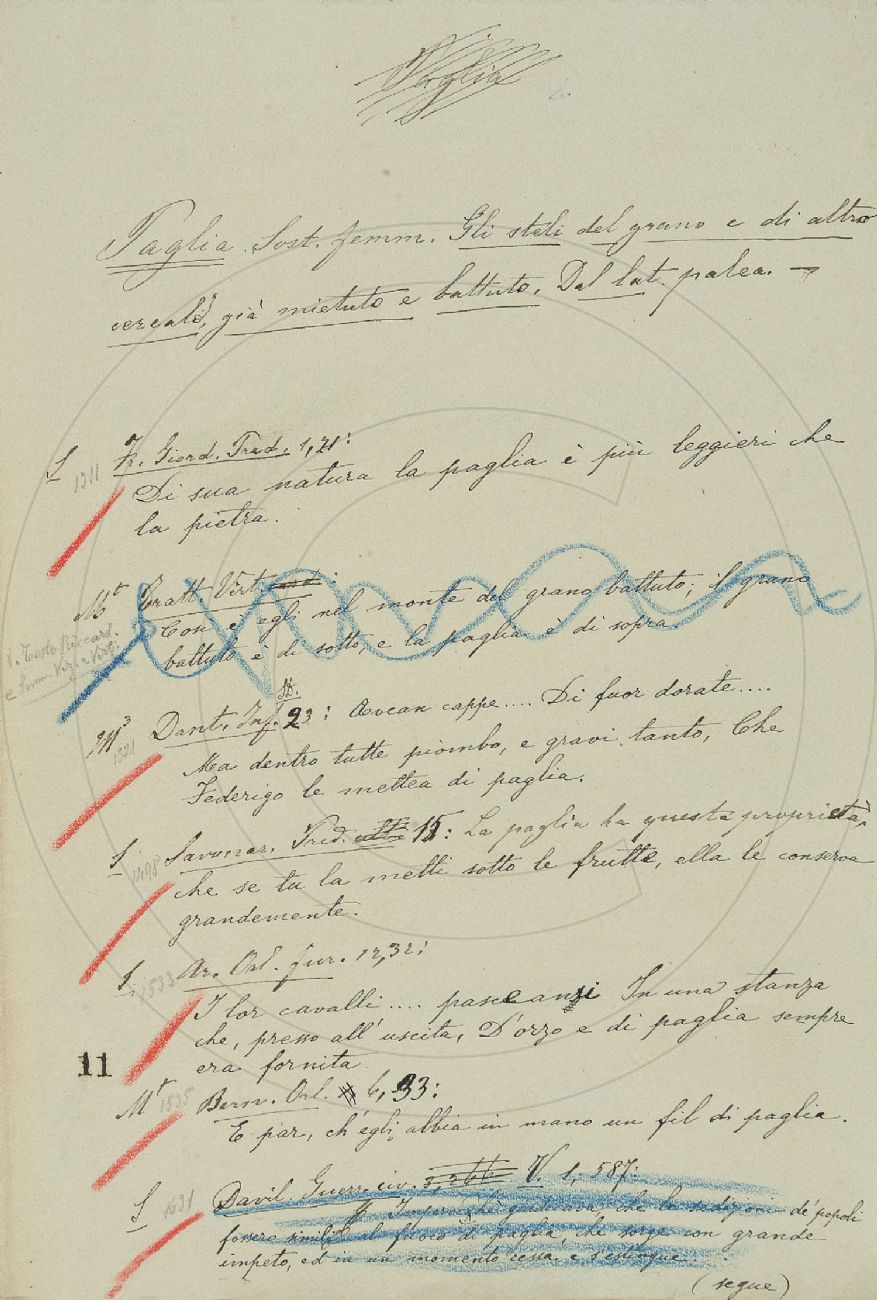 Paglia
Paglia. Sost. femm. Gli steli del grano e di altro
cereale, già mietuto e battuto. Dal lat. palea. —
S Fr. Giord. Pred. 1, 21:
1311
Di sua natura la paglia è più leggieri che
la pietra.
Mt Tratt. Virt.:
Così è egli nel monte del grano battuto; il grano
v. Testo Riccard.
battuto è di sotto, e la paglia è di sopra.
e Somm. Viz. e Virt.
D.
Dant. Inf. 23: Avean cappe.... Di fuor dorate....
1321
Ma dentro tutte piombo, e gravi tanto, Che
Federigo le mettea di paglia.
S Savonar. Pred. 15: La paglia ha questa proprietà,
1498
che se tu la metti sotto le frutte, ella le conserva
grandemente.
S Ar. Orl. fur. 12, 32:
1533
I lor cavalli.... pasceansi In una stanza
che, presso all'uscita, D'orzo e di paglia sempre
era fornita.
11
Mt 1535 Bern. Orl. 6, 33:
E par, ch'egli abbia in mano un fil di paglia.
S 1631 Davil. Guerr. civ. 3, 266 V. 1, 587:
Imperocchè giudicava, che le sedizioni de' popoli
fossero simili al fuoco di paglia, che sorge con grande
impeto, ed in un momento cessa e s'estingue.
(segue)